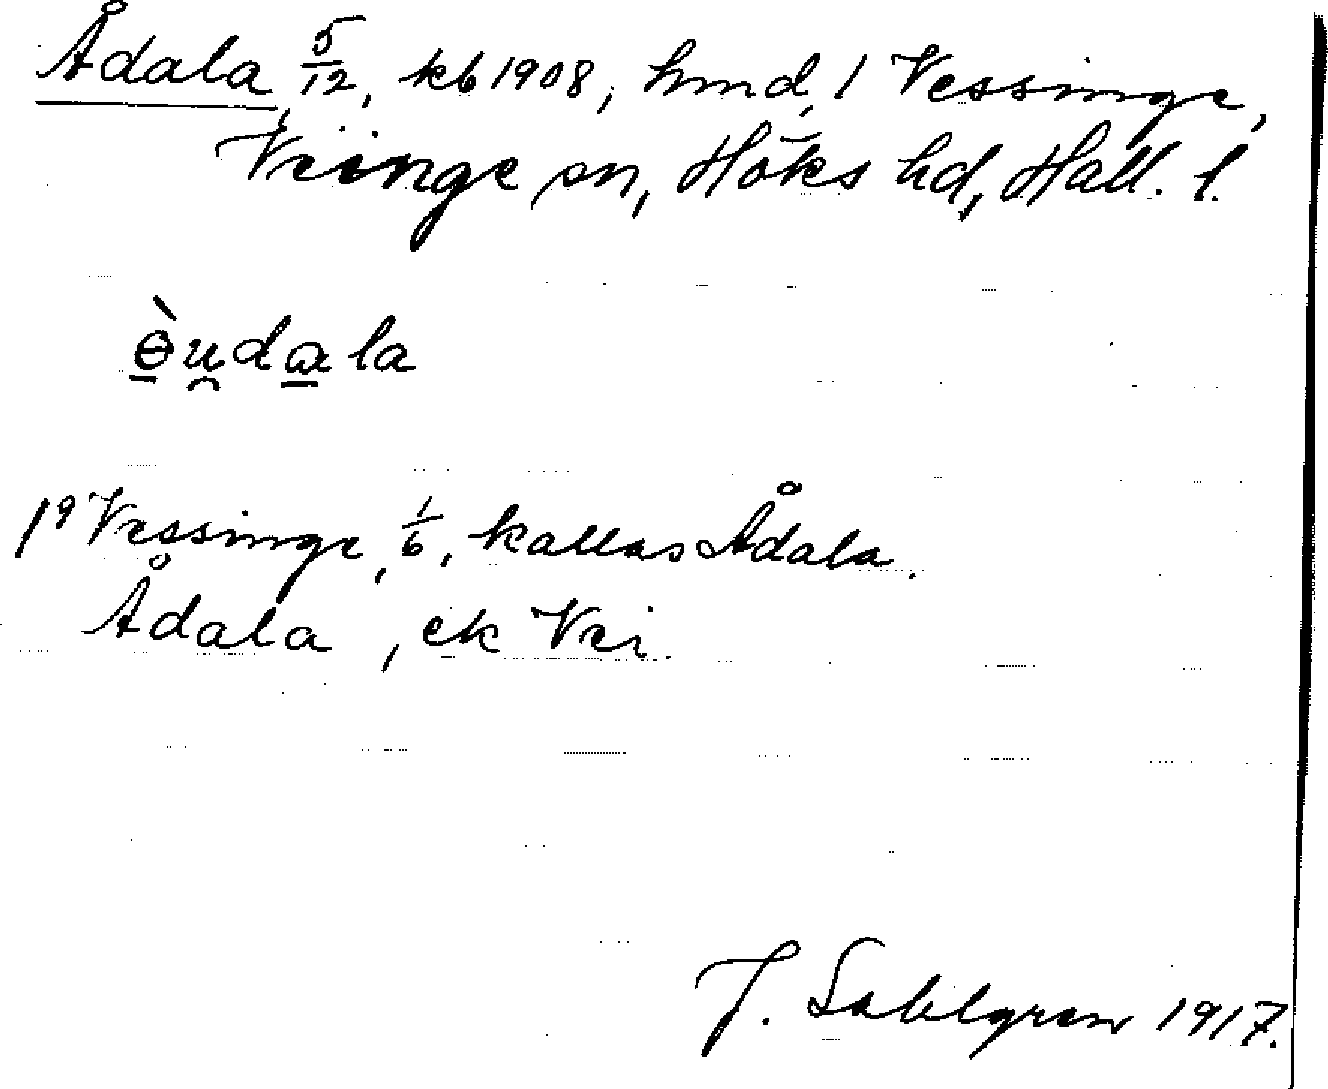 Ådala, 5/12, kb 1908, hmd, 1 Vessinge,
Veinge sn, Höks hd, Hall. l.
ɵ̀u̯dala
1⁹ Vessinge, 1/6, kallas Ådala.
Ådala, ek Vei
J. Sahlgren 1917.